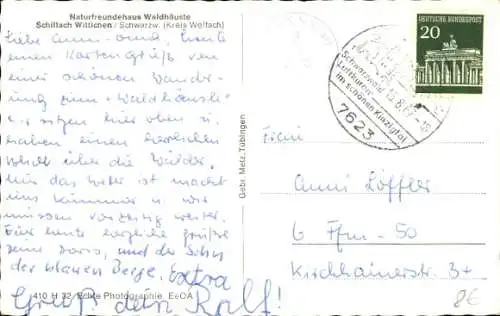 Naturfreundehaus Waldhäusle
Schiltach Wittichen / Schwarzw. (Kreis Wolfach)
Liebe Anni- heute
einen Kartengruß von
einer schönen Wander-
ung zum "Waldhäusle"
wir sitzen hier oben u.
haben einen herrlichen
Blick über die Wälder.
Nur das Wetter ist macht
uns Kummer u. wir
müssen vorzeitig weiter.
Für heute herzliche Grüße
Doris, und der Schn
der blauen Berge. Extra
Gruß dein Rolf!
410 H 32 Echte Photographie EeOA
Gebr. Metz, Tübingen
DEUTSCHE BUNDESPOST
20
Schwarzwald
Luftkurort
im schönen Kinzigtal
7623
Frau
Anni Löffler
6 Ffm - 50
Kirchhainerstr. 3
8€